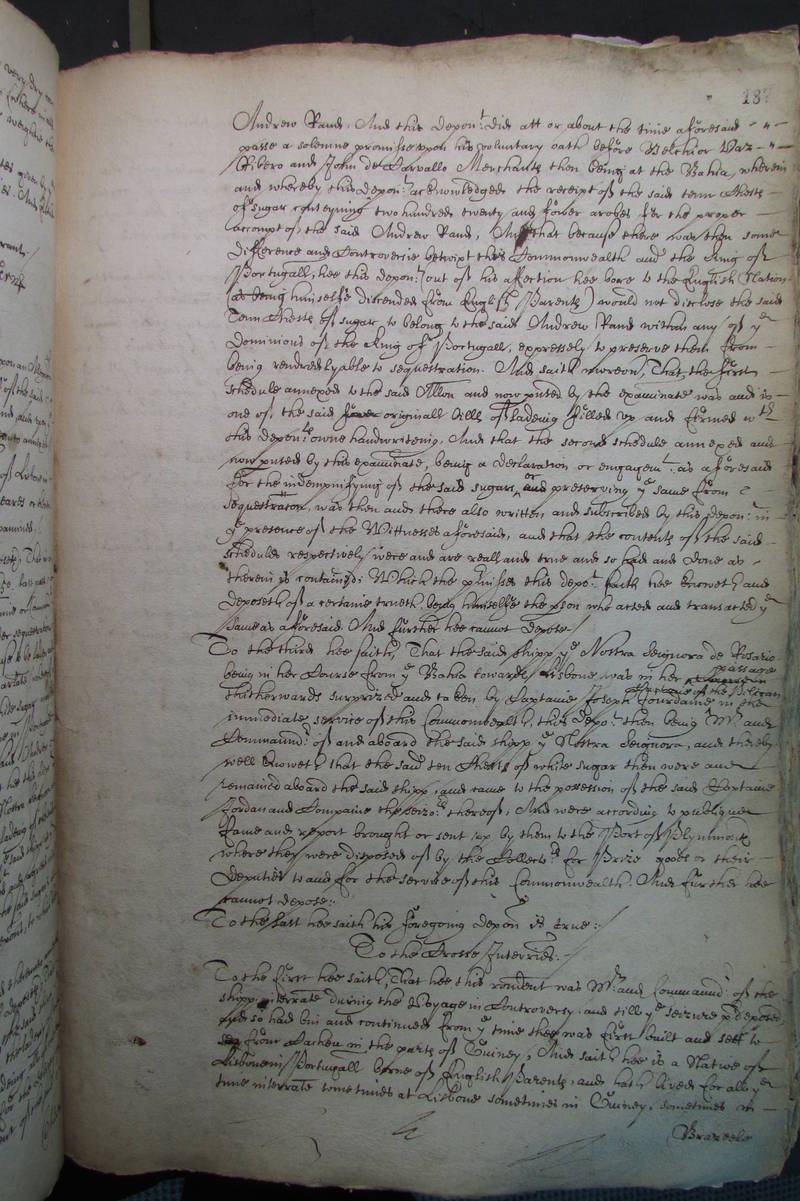 187
Andrew Rand, And this depon:t did att or about the time aforesaid
passe a solemne promise upon his voluntary oath before Belchior Vaz
Ribero and John de Carvallo Merchants then being at the Bahia, wherein
and whereby this depon:t acknowledged the receipt of the said tenn Chests
of sugar conteyning two hundred twenty and fower arobes for the proper
accompt of the said Andrew Rand, And that because there was then some
difference and Controversie betwixt this Commonwealth and the King of
Portugall, hee this depon:t (out of his affection hee bore to the English Nation
(as being himselfe discended from English Parents) would not disclose the said
Tenn Chests of sugar to belong to the said Andrew Rand within any of ye
Dominions of the King of Portugall, expressely to preserve them from
being rendred lyable to sequestration. And saith moreover, That the first
schedule annexed to the said Allon and now showed by the examinate was and is
one of the said originall bills of ladeing filled up and firmed wth
this depon:ts owne handwriteing, And that the second schedule annexed and
now showed by this examinate, being a declaration or engagem:t as aforesaid
for the indempnifying of the said sugars, and preserving ye same from
sequestration was then and there also written, and subscribed by this depon:t in
ye presence of the Wittnesses aforesaid, and that the contents of the said
schedules respectively were and are reall and true and so had and done as
therein is contained: Which the pmisses this depo:t saith hee knoweth and
deposeth of a certaine trueth being himselfe the pson who acted and transacted ye
same as aforesaid. And further hee cannot depose./
To the third hee saith, That the said shipp ye Nostra Seignora de Rosario
being in her Course from ye Bahia towards Lisbone was in her passage
thitherwards surprized and taken by Captaine Joseph Jourdaine in the
immediate service of this Commonwealth, this depo:t then being Mr and
Commaund:r of and aboard the said shipp ye Nostra Seignora, and thereby
well knoweth that the said ten Chests of white sugar then were and
remained aboard the said shipp, and came to the possession of the said Captaine
Jordan and Companie the seizo:rs thereof, And were according to publique
fame and report brought or sent up by them to the Port of Plymmouth
where they were disposed of by the Collecto:rs for Prize goods or their
deputies to and for the service of this Commonwealth. And further hee
cannot depose:
To the last hee saith his foregoing depon is true:/
To the Crosse Interries:-
To the first hee saith, That hee this rendent was Mr and Commaund:r of the
shipp interrate during the Voyage in Controversy, and till ye seizure pdeposed
and so had bin and continued from ye time shee was first built and sett to
sea from Cacheu in the parts of Guiney, And saith hee is a Native of
Lisbone in Portugall borne of English Parents, and hath lived for all ye
time interrate sometimes at Lisbone sometimes in Guiney, sometimes in
Brazeele